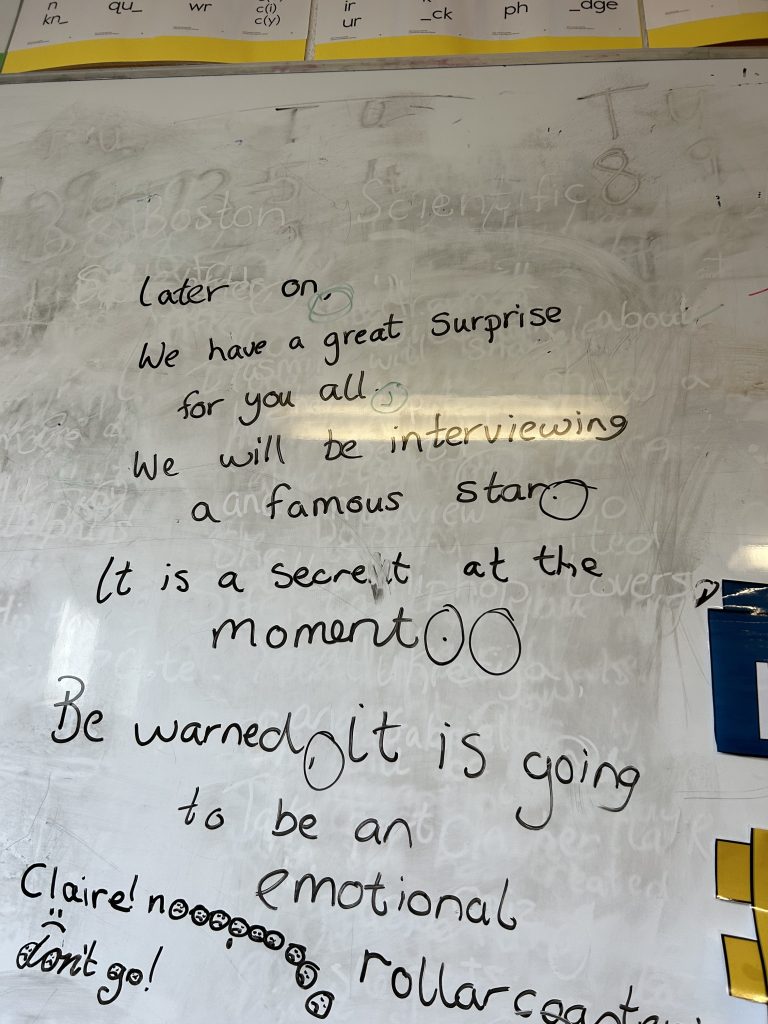 n
kn_
qu_
wr
c(i)
c(y)
ir
ur
_ck
ph
_dge
T U
8 9
Boston Scientific
Later on,
We have a great surprise
for you all.
We will be interviewing
a famous star.
It is a secret at the
moment.
Be warned, it is going
to be an
emotional
rollarcoaster
Claire! nooooooooooo
don't go!